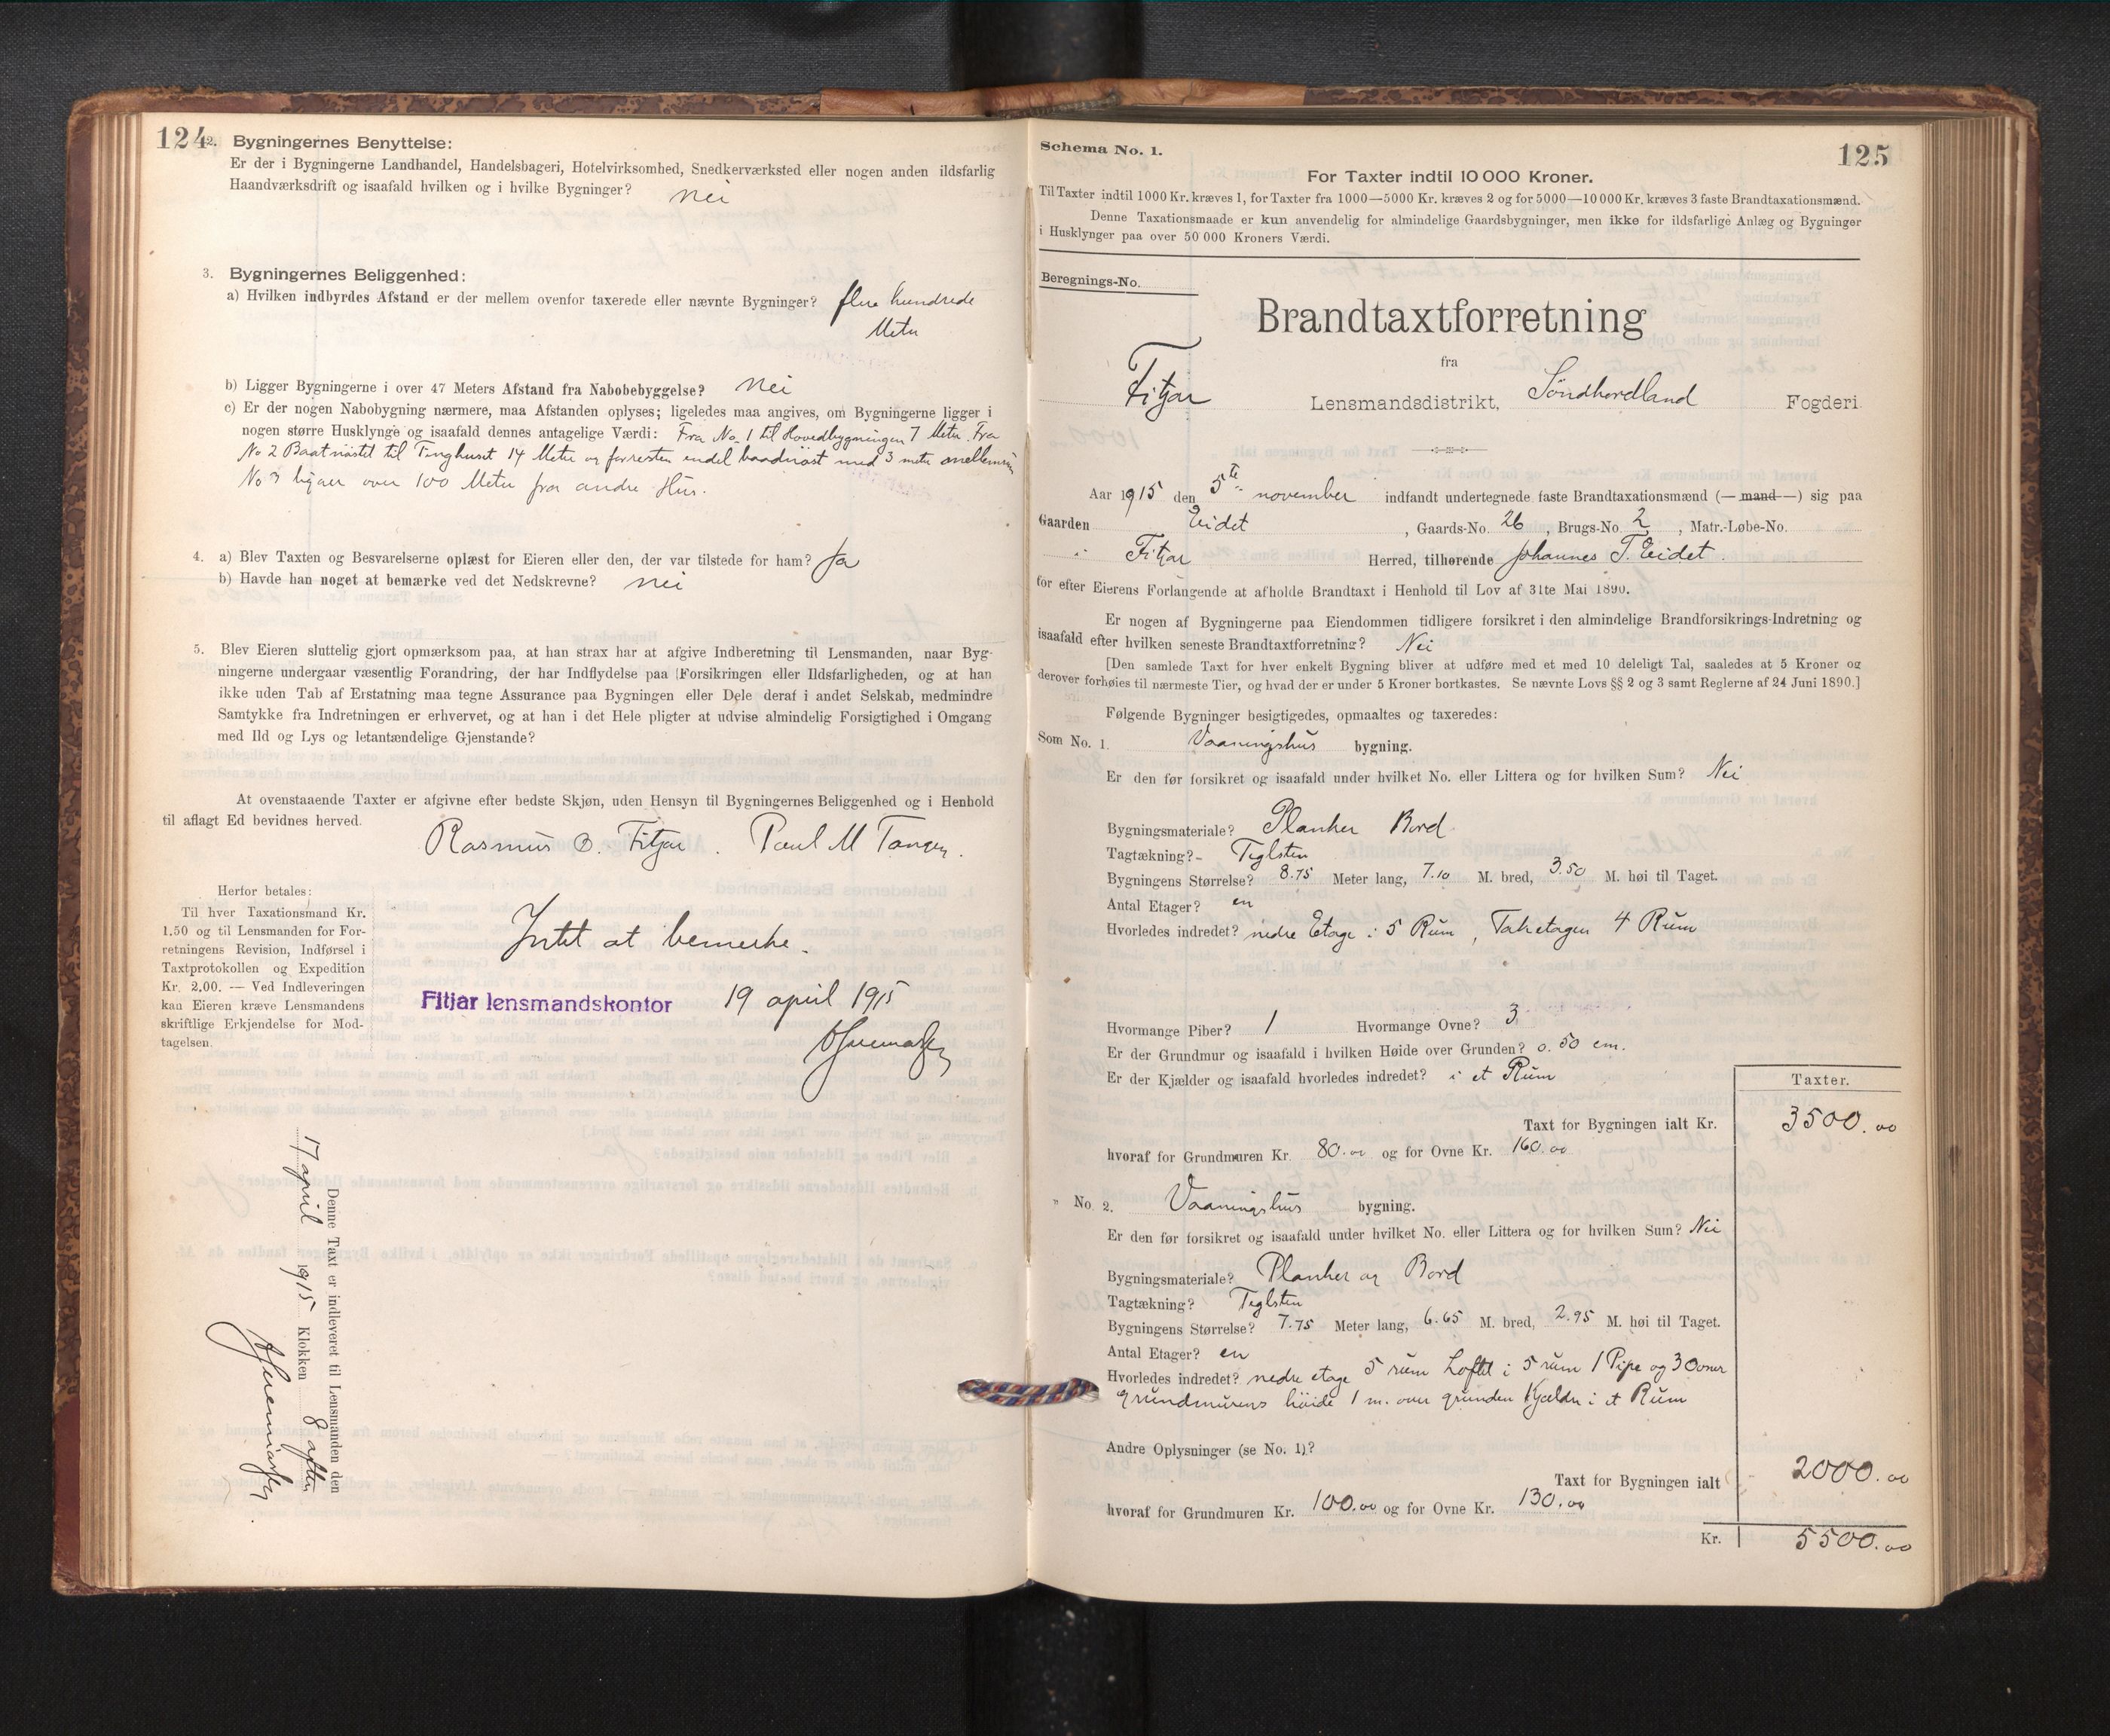 124
2. Bygningernes Benyttelse:
Er der i Bygningerne Landhandel, Handelsbageri, Hotelvirksomhed, Snedkerværksted eller nogen anden ildsfarlig
Haandværksdrift og isaafald hvilken og i hvilke Bygninger? nei
3. Bygningernes Beliggenhed:
a) Hvilken indbyrdes Afstand er der mellem ovenfor taxerede eller nævnte Bygninger? flere hundrede
Meter
b) Ligger Bygningerne i over 47 Meters Afstand fra Nabobebyggelse? nei
c) Er der nogen Nabobygning nærmere, maa Afstanden oplyses; ligeledes maa angives, om Bygningerne ligger i
nogen større Husklynge og isaafald dennes antagelige Værdi: Fra No 1 til Hovedbygningen 7 Meter. Fra
No 2 Baatnöstet til Tinghuset 14 Meter og forresten endel baadnöst med 3 meter mellemrum
No 3 ligger over 100 Meter fra andre Hus.
4. a) Blev Taxten og Besvarelserne oplæst for Eieren eller den, der var tilstede for ham? Ja
b) Havde han noget at bemærke ved det Nedskrevne? nei
5. Blev Eieren sluttelig gjort opmærksom paa, at han strax har at afgive Indberetning til Lensmanden, naar Byg-
ningerne undergaar væsentlig Forandring, der har Indflydelse paa Forsikringen eller Ildsfarligheden, og at han
ikke uden Tab af Erstatning maa tegne Assurance paa Bygningen eller Dele deraf i andet Selskab, medmindre
Samtykke fra Indretningen er erhvervet, og at han i det Hele pligter at udvise almindelig Forsigtighed i Omgang
med Ild og Lys og letantændelige Gjenstande?
At ovenstaaende Taxter er afgivne efter bedste Skjøn, uden Hensyn til Bygningernes Beliggenhed og i Henhold
til aflagt Ed bevidnes herved.
Rasmus B. Fitjar. Paul M Tangen.
Herfor betales:
Til hver Taxationsmand Kr.
1.50 og til Lensmanden for For-
retningens Revision, Indførsel i
Taxtprotokollen og Expedition
Kr. 2.00. — Ved Indleveringen
kan Eieren kræve Lensmandens
skriftlige Erkjendelse for Mod-
tagelsen.
Intet at bemerke.
Fitjar lensmandskontor 19 april 1915
Denne Taxt er indleveret til Lensmanden den
17 april 1915 Klokken 8 aften
125
Schema No. 1.
For Taxter indtil 10 000 Kroner.
Til Taxter indtil 1000 Kr. kræves 1, for Taxter fra 1000—5000 Kr. kræves 2 og for 5000—10 000 Kr. kræves 3 faste Brandtaxationsmænd.
Denne Taxationsmaade er kun anvendelig for almindelige Gaardsbygninger, men ikke for ildsfarlige Anlæg og Bygninger
i Husklynger paa over 50 000 Kroners Værdi.
Beregnings-No.
Brandtaxtforretning
fra
Fitjar Lensmandsdistrikt, Söndhordland Fogderi
Aar 1915 den 5te november indfandt undertegnede faste Brandtaxationsmænd (— mand —) sig paa
Gaarden Eidet , Gaards-No. 26 , Brugs-No. 2 , Matr.-Løbe-No.
i Fitjar Herred, tilhørende Johannes T. Eidet.
for efter Eierens Forlangende at afholde Brandtaxt i Henhold til Lov af 31te Mai 1890.
Er nogen af Bygningerne paa Eiendommen tidligere forsikret i den almindelige Brandforsikrings-Indretning og
isaafald efter hvilken seneste Brandtaxtforretning? Nei
[Den samlede Taxt for hver enkelt Bygning bliver at udføre med et med 10 deleligt Tal, saaledes at 5 Kroner og
derover forhøies til nærmeste Tier, og hvad der er under 5 Kroner bortkastes. Se nævnte Lovs §§ 2 og 3 samt Reglerne af 24 Juni 1890.]
Følgende Bygninger besigtigedes, opmaaltes og taxeredes:
Som No. 1. Vaaningshus bygning.
Er den før forsikret og isaafald under hvilket No. eller Littera og for hvilken Sum? Nei
Bygningsmateriale? Planker Bord
Tagtækning? Teglsten
Bygningens Størrelse? 8.75 Meter lang, 7.10 M. bred, 3.50 M. høi til Taget.
Antal Etager? en
Hvorledes indredet? nedre Etage i 5 Rum, Taketagen 4 Rum
Hvormange Piber? 1 Hvormange Ovne? 3
Er der Grundmur og isaafald i hvilken Høide over Grunden? 0.50 cm.
Er der Kjælder og isaafald hvorledes indredet? i et Rum
Taxter.
Taxt for Bygningen ialt Kr. 3500.00
hvoraf for Grundmuren Kr. 80.00 og for Ovne Kr. 160.00
" No. 2. Vaaningshus bygning.
Er den før forsikret og isaafald under hvilket No. eller Littera og for hvilken Sum? Nei
Bygningsmateriale? Planker og Bord
Tagtækning? Teglsten
Bygningens Størrelse? 7.75 Meter lang, 6.65 M. bred, 2.95 M. høi til Taget.
Antal Etager? en
Hvorledes indredet? nedre etage 5 rum Loftet i 5 rum 1 Pipe og 3 Ovner
grundmurens höide 1 m. over grunden Kjælder i et Rum
Andre Oplysninger (se No. 1)?
Taxt for Bygningen ialt 2000.00
hvoraf for Grundmuren Kr. 100.00 og for Ovne Kr. 130.00
Kr. 5500.00